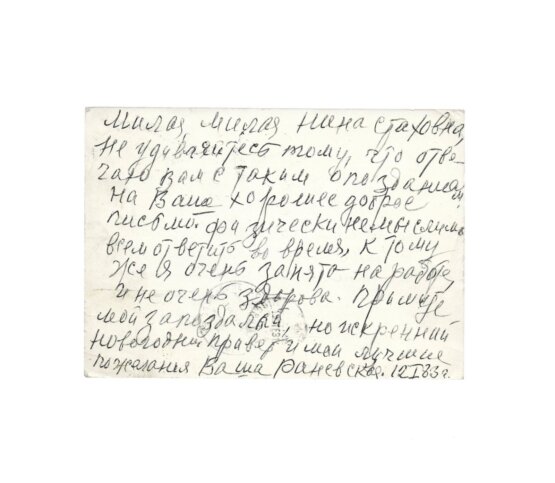 Милая, милая Нина Стаховна,
не удивляйтесь тому, что отве-
чаю вам с таким опозданием
на Ваше хорошее доброе
письмо. физически немыслимо
всем ответить во время, к тому
же я очень занята на работе,
и не очень здорова. Примите
мой запоздалый, но искренний
новогодний привет и мои лучшие
пожелания Ваша Раневская. 12 I 63 г.